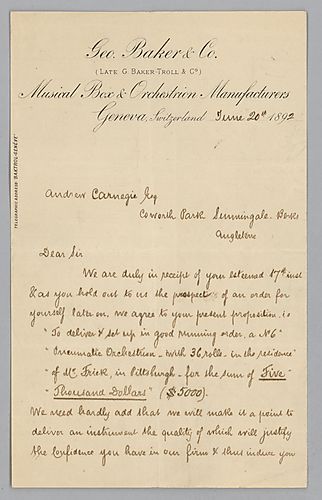 Geo. Baker & Co.
(LATE G. BAKER-TROLL & Co)
Musical Box & Orchestrion Manufacturers
Geneva, Switzerland June 20th 1892
TELEGRAPHIC ADDRESS "BAKTROL-GENÈVE"
Andrew Carnegie Esq
Coworth Park Sunningdale. Berks
Angleterre
Dear Sir
We are duly in receipt of your esteemed 17th inst
& as you hold out to us the prospect of an order for
yourself later on, we agree to your present proposition. is
"To deliver & set up in good running order, a No 6"
"Pneumatic Orchestrion - with 36 rolls - in the residence"
"of Mr Frick, in Pittsburgh - for the sum of Five"
"Thousand Dollars" ($5000).
We need hardly add that we will make it a point to
deliver an instrument the quality of which will justify
the confidence you have in our firm & thus induce you